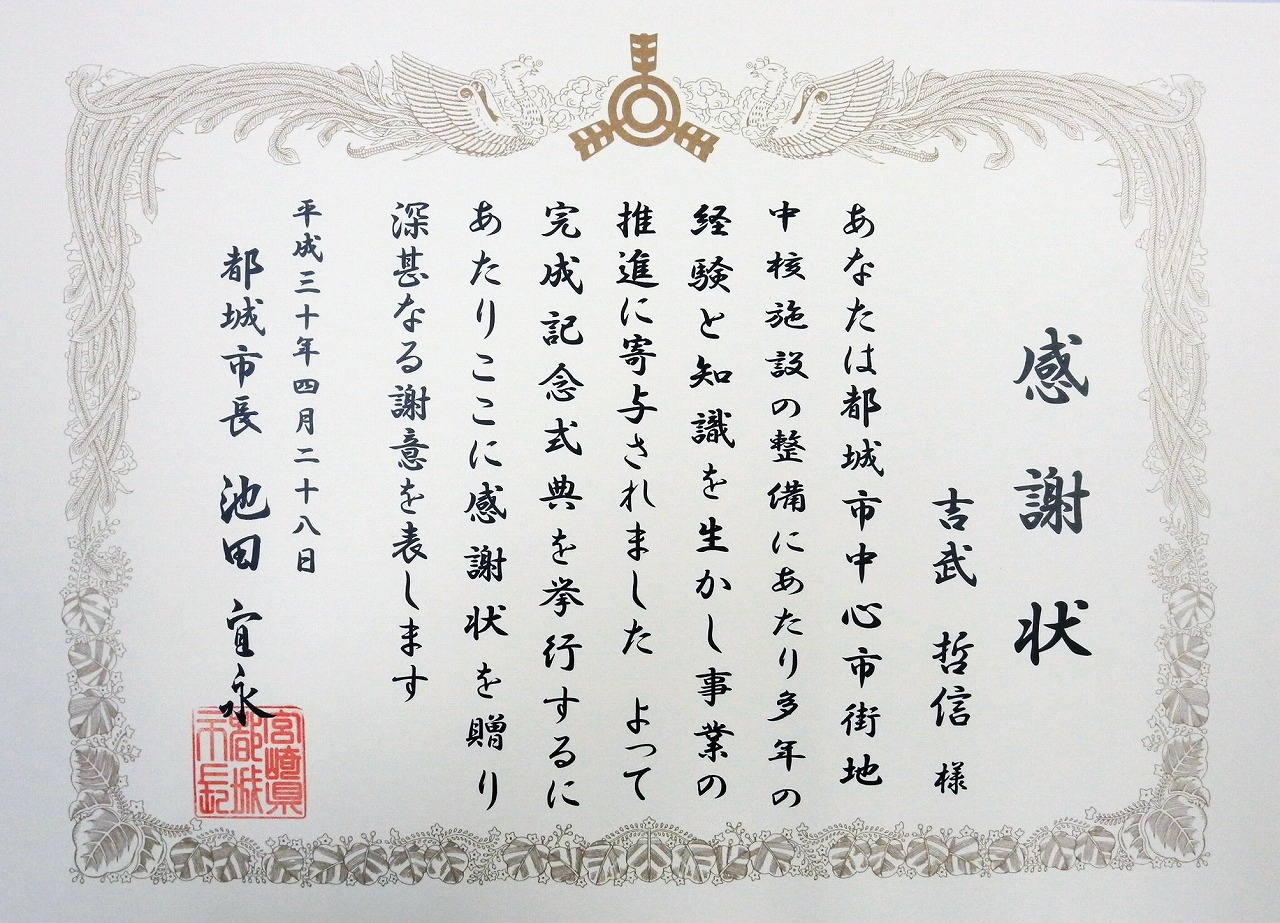 感謝状
吉武 哲信 様
あなたは都城市中心市街地
中核施設の整備にあたり多年の
経験と知識を生かし事業の
推進に寄与されました よって
完成記念式典を挙行するに
あたりここに感謝状を贈り
深甚なる謝意を表します
平成三十年四月二十八日
都城市長 池田 宜永
宮崎県
都城
市長